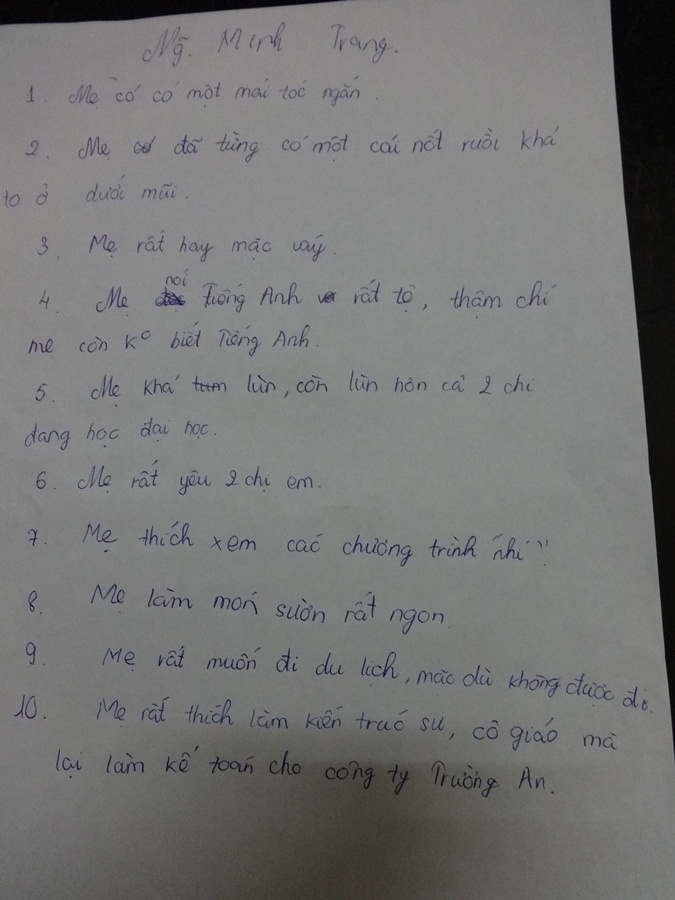 Ng̃. Minh Trang.
1. Mẹ có có một mái tóc ngắn.
2. Mẹ đã từng có một cái nốt ruồi khá
to ở dưới mũi.
3. Mẹ rất hay mặc váy.
4. Mẹ nói Tiếng Anh rất tệ, thậm chí
mẹ còn k° biết Tiếng Anh.
5. Mẹ khá lùn, còn lùn hơn cả 2 chị
đang học đại học.
6. Mẹ rất yêu 2 chị em.
7. Mẹ thích xem các chương trình "nhí"
8. Mẹ làm món sườn rất ngon.
9. Mẹ rất muốn đi du lịch, mặc dù không được đi.
10. Mẹ rất thích làm kiến trúc sư, cô giáo mà
lại làm kế toán cho công ty Trường An.